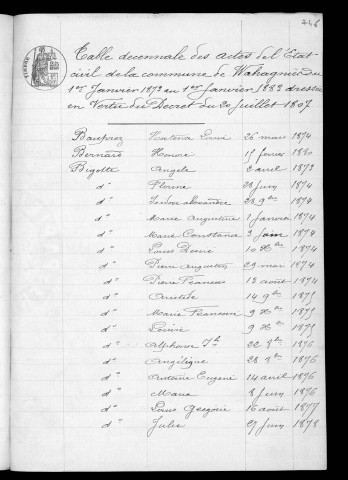 746
Table decennale des actes de l'Etat
civil de la commune de Wahagnies du
1er Janvier 1873 au 1er Janvier 1883 dressée
en Vertu du Decret du 20 Juillet 1807
Bauprez 26 mars 1874
Bernard Honoré 15 fevrier 1880
Bigotte Angele 2 avril 1873
d° Florine 28 Juin 1874
d° Isidore Alexandre 28 9bre 1874
d° Marie Augustine 1 Janvier 1874
d° Marie Constance 3 Juin 1874
d° Louis Désiré 10 Xbre 1874
d° Pierre Augustin 29 mai 1874
d° Pierre Francois 18 août 1874
d° Aristide 14 9bre 1875
d° Marie 9 Xbre 1875
d° Louise 9 Xbre 1875
d° Alphonse Jh 22 8bre 1876
d° Angélique 28 8bre 1876
d° Antoine Eugène 14 avril 1876
d° Marie 8 Juin 1876
d° Louis Grégoire 16 août 1877
d° Jules 29 Juin 1878